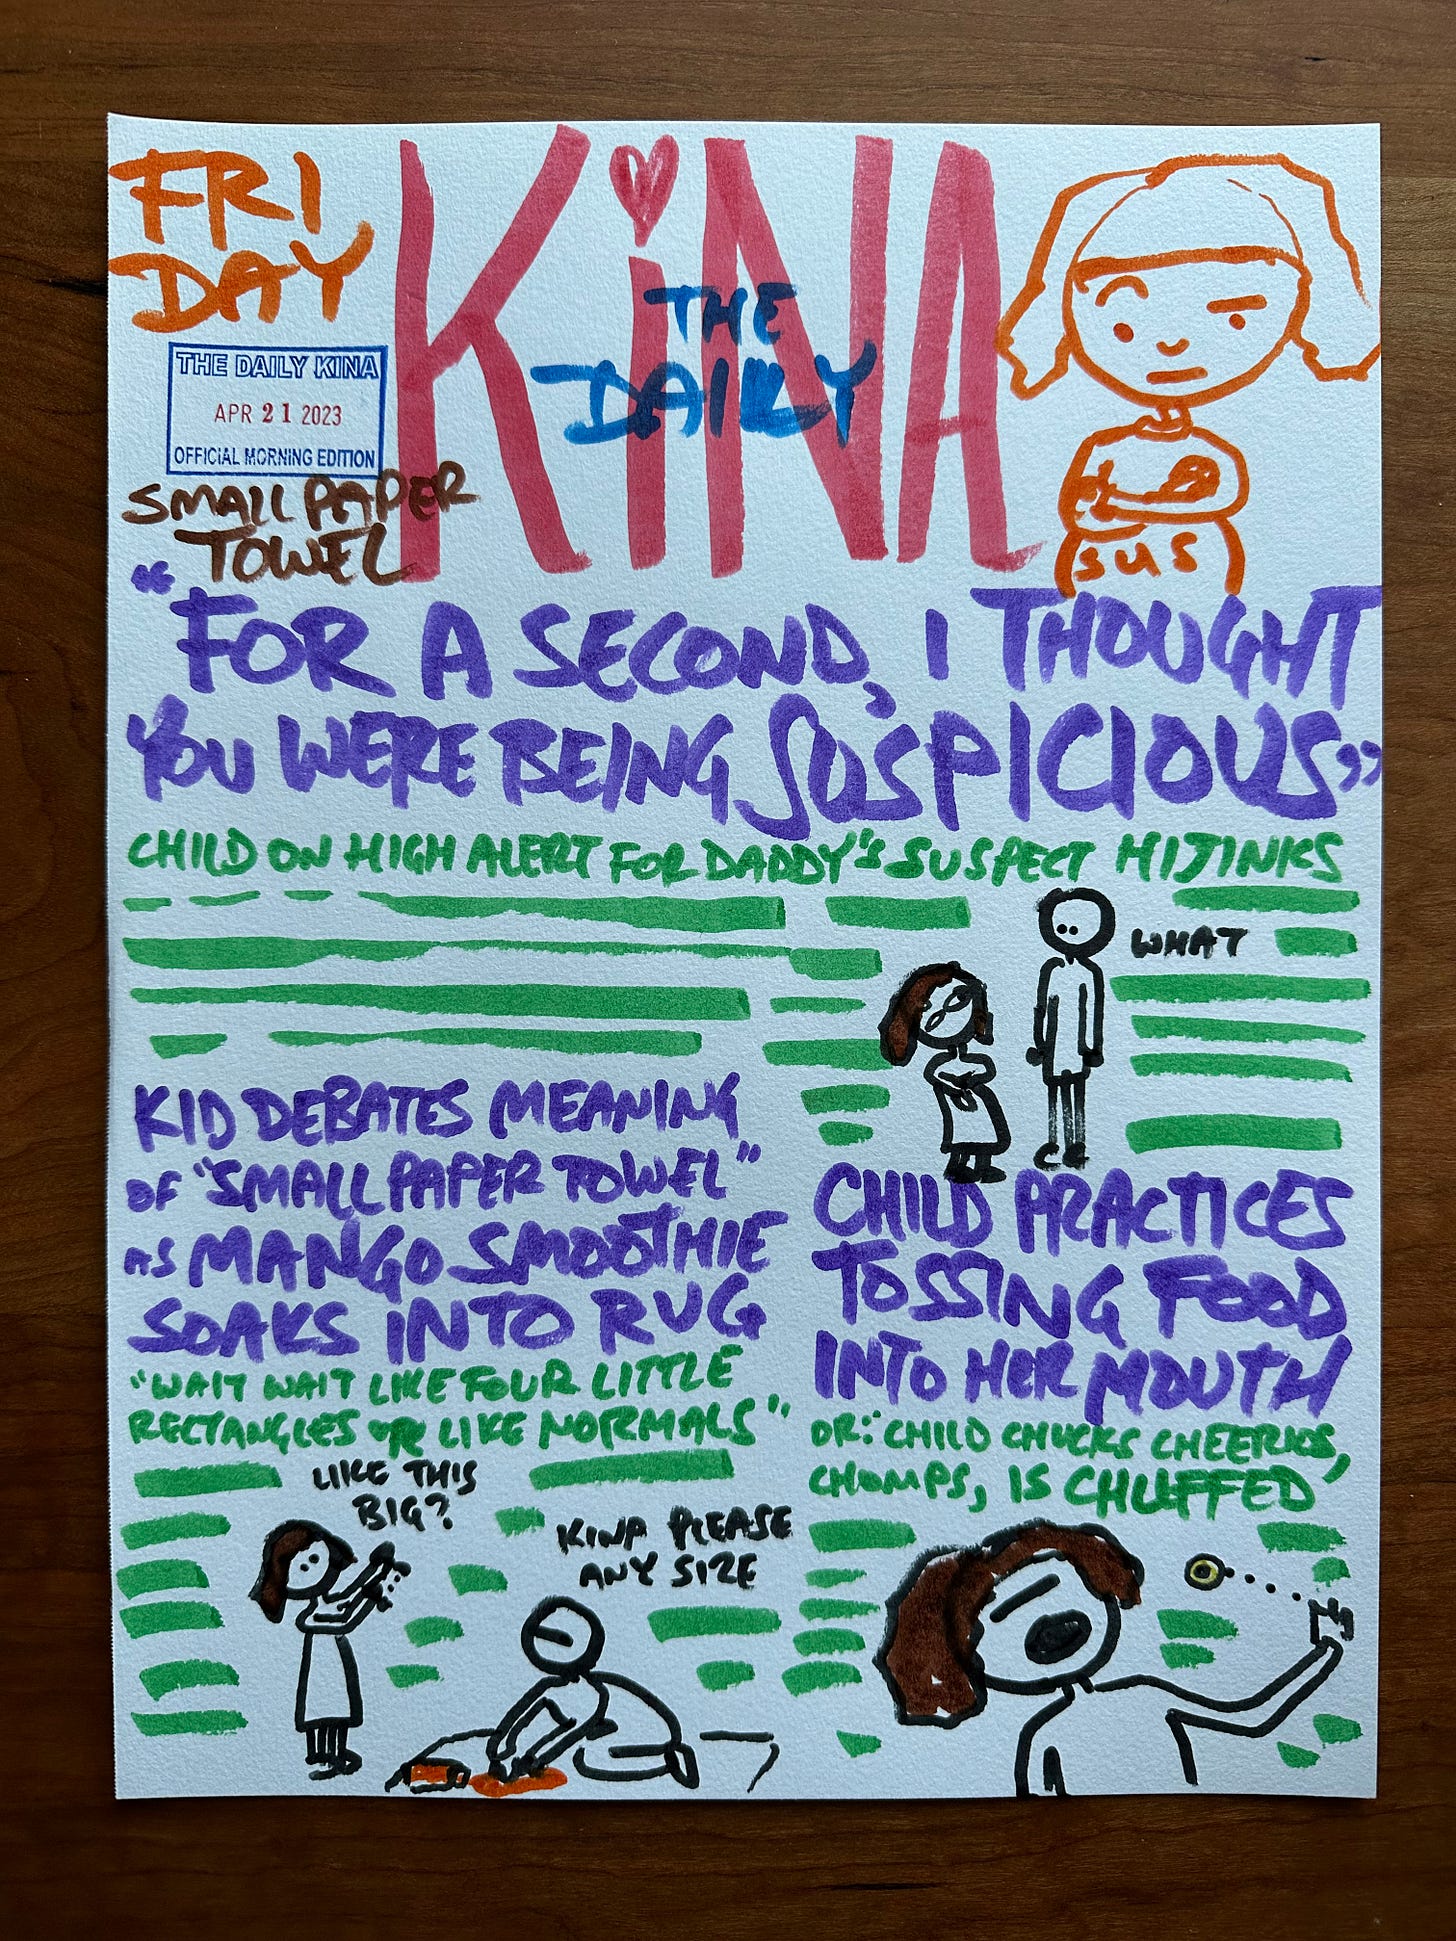 FRI
DAY
KiNA
THE
DAILY
THE DAILY KINA
APR 21 2023
OFFICIAL MORNING EDITION
SMALL PAPER
TOWEL
SUS
"FOR A SECOND, I THOUGHT
YOU WERE BEING SUSPICIOUS"
CHILD ON HIGH ALERT FOR DADDY'S SUSPECT HIJINKS
WHAT
KID DEBATES MEANING
OF "SMALL PAPER TOWEL"
AS MANGO SMOOTHIE
SOAKS INTO RUG
"WAIT WAIT LIKE FOUR LITTLE
RECTANGLES OR LIKE NORMALS"
LIKE THIS
BIG?
KINA PLEASE
ANY SIZE
CHILD PRACTICES
TOSSING FOOD
INTO HER MOUTH
OR: CHILD CHUCKS CHEERIOS,
CHOMPS, IS CHUFFED